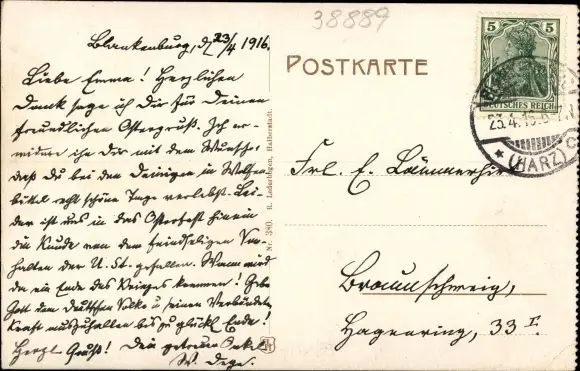 38889
Blankenburg, d. 23/4 1916.
Liebe Emma! Herzlichen
Dank sage ich Dir für Deinen
freundlichen Ostergruß. Ich er-
widere ihn Dir mit dem Wunsche,
daß Du bei den Deinigen in Wolfen-
büttel recht schöne Tage verlebst. Lei-
der ist uns in das Osterfest hinein
die Kunde von dem feindseligen Ver-
halten der U. St. gefallen. Wann wird
da ein Ende des Krieges kommen! Gebe
Gott dem Deutschen Volke u. seinen Verbündeten
Kraft auszuhalten bis zu glückl. Ende!
Herzl. Gruß! Dein getreuer Onkel
W. Dege.
Nr. 380. R. Lederbogen, Halberstadt.
POSTKARTE
5 5
DEUTSCHES REICH
23.4.16
* (HARZ)
Frl. E. Lämmerhirt
Braunschweig,
Hagenring, 33 I.